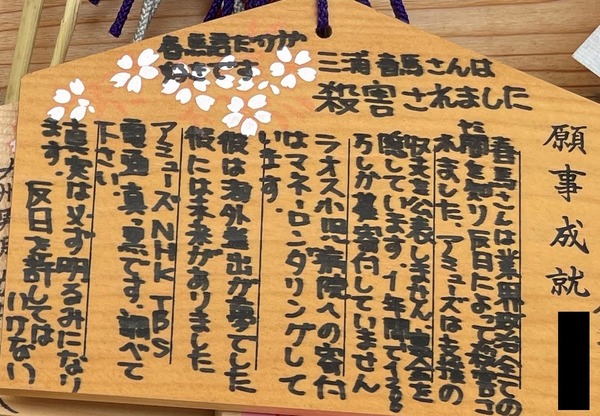 春馬君だけが
好きです
三浦春馬さんは
殺害されました
願事成就
春馬さんは業界の全ての
た闇を知り反日によって殺害さ
れました。アミューズは支援の
収支を公表しません。募金を
隠しています。1年間で
万しか募寄付していません
ラオス小児病院への寄付
はマネーロンダリングして
います。
彼は海外進出が夢でした
彼には未来がありました
アミューズ NHK TBS
電通、真っ黒です。調べて
下さい
真実は必ず明るみになり
ます。
反日を許しては
いけない